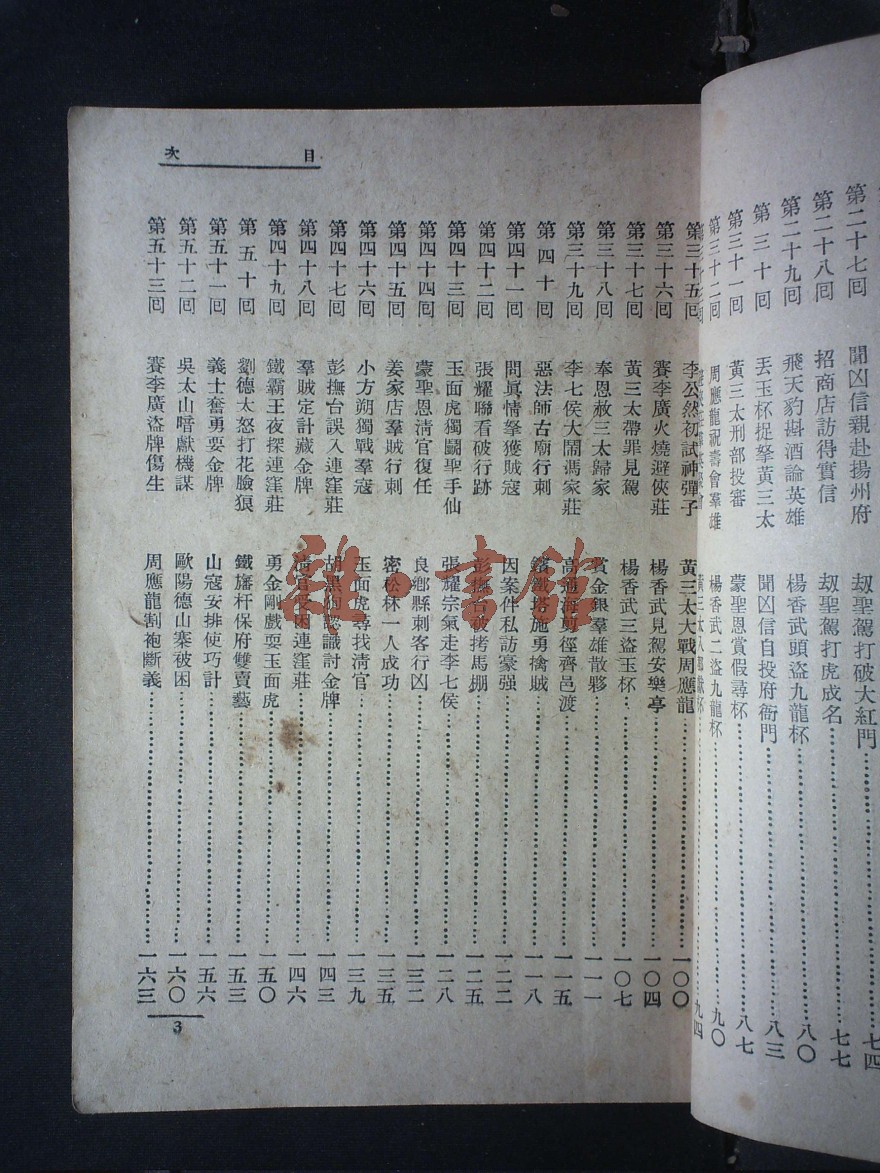 目次
第二十七回 聞凶信親赴揚州府 刼聖駕打破大紅門 七四
第二十八回 招商店訪得實信 刼聖駕打虎成名 七七
第二十九回 飛天豹斟酒論英雄 楊香武頭盜九龍杯 八〇
第三十回 丟玉杯捉拏黃三太 聞凶信自投府衙門 八三
第三十一回 黃三太刑部投審 蒙聖恩賞假尋杯 八七
第三十二回 周應龍祝壽會羣雄 楊香武二盜九龍杯 九〇
九四
第三十五回 李公然初試神彈子 黃三太大戰周應龍 一〇〇
第三十六回 賽李廣火燒避俠莊 楊香武見駕安樂亭 一〇四
第三十七回 黃三太帶罪見駕 楊香武三盜玉杯 一〇七
第三十八回 奉恩赦三太歸家 賞金銀羣雄散夥 一一一
第三十九回 李七侯大鬧馮家莊 高通海剪徑齊邑渡 一一五
第四十回 惡法師古廟行刺 鑌鐵塔施勇擒賊 一一八
第四十一回 問眞情拏獲賊寇 因案件私訪豪强 一二二
第四十二回 張耀聯看破行跡 彭撫台被拷馬棚 一二五
第四十三回 玉面虎獨鬭聖手仙 張耀宗氣走李七侯 一二八
第四十四回 蒙聖恩清官復任 良鄉縣刺客行凶 一三二
第四十五回 姜家店羣賊行刺 密松林一人成功 一三五
第四十六回 小方朔獨戰羣寇 玉面虎尋找清官 一三九
第四十七回 彭撫台誤入連窪莊 胡黑狗認識討金牌 一四三
第四十八回 羣賊定計藏金牌 清官受困連窪莊 一四六
第四十九回 鐵霸王夜探連窪莊 勇金剛戲耍玉面虎 一五〇
第五十回 劉德太怒打花臉狼 鐵旛杆保府雙賣藝 一五三
第五十一回 義士奮勇要金牌 山寇安排使巧計 一五六
第五十二回 吳太山暗獻機謀 歐陽德山寨被困 一六〇
第五十三回 賽李廣盜牌傷生 周應龍割袍斷義 一六三
3
雜·書館